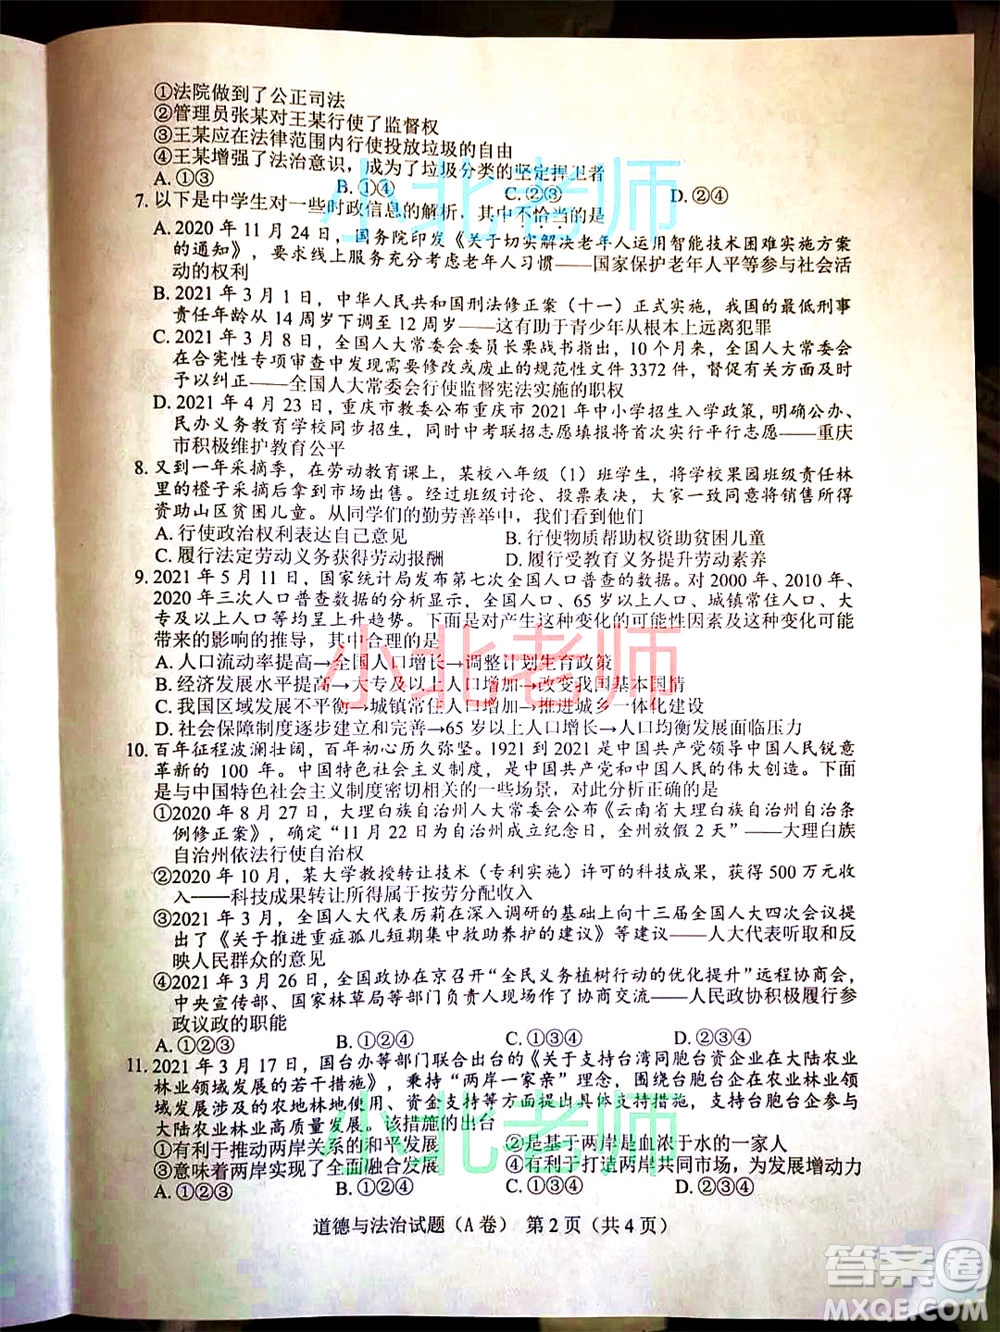 ①法院做到了公正司法
②管理员张某对王某行使了监督权
③王某应在法律范围内行使投放垃圾的自由
④王某增强了法治意识，成为了垃圾分类的坚定捍卫者
A. ①③ B. ①④ C. ②③ D. ②④
7. 以下是中学生对一些时政信息的解析，其中不恰当的是
A. 2020 年 11 月 24 日，国务院印发《关于切实解决老年人运用智能技术困难实施方案
的通知》，要求线上服务充分考虑老年人习惯——国家保护老年人平等参与社会活
动的权利
B. 2021 年 3 月 1 日，中华人民共和国刑法修正案（十一）正式实施，我国的最低刑事
责任年龄从 14 周岁下调至 12 周岁——这有助于青少年从根本上远离犯罪
C. 2021 年 3 月 8 日，全国人大常委会委员长栗战书指出，10 个月来，全国人大常委会
在合宪性专项审查中发现需要修改或废止的规范性文件 3372 件，督促有关方面
予以纠正——全国人大常委会行使监督宪法实施的职权
D. 2021 年 4 月 23 日，重庆市教委公布重庆市 2021 年中小学招生入学政策，明确公办、
民办义务教育学校同步招生，同时中考联招志愿填报将首次实行平行志愿——重庆
市积极维护教育公平
8. 又到一年采摘季，在劳动教育课上，某校八年级（1）班学生，将学校果园班级责任林
里的橙子采摘后拿到市场出售。经过班级讨论、投票表决，大家一致同意将销售所得
资助山区贫困儿童。从同学们的勤劳善举中，我们看到他们
A. 行使政治权利表达自己意见 B. 行使物质帮助权资助贫困儿童
C. 履行法定劳动义务获得劳动报酬 D. 履行受教育义务提升劳动素养
9. 2021 年 5 月 11 日，国家统计局发布第七次全国人口普查的数据。对 2000 年、2010 年、
2020 年三次人口普查数据的分析显示，全国人口、65 岁以上人口、城镇常住人口、大
专及以上人口等均呈上升趋势。下面是对产生这种变化的可能性因素及这种变化可能
带来的影响的推导，其中合理的是
A. 人口流动率提高→全国人口增长→调整计划生育政策
B. 经济发展水平提高→大专及以上人口增加→改变我国基本国情
C. 我国区域发展不平衡→城镇常住人口增加→推进城乡一体化建设
D. 社会保障制度逐步建立和完善→65 岁以上人口增加→人口均衡发展面临压力
10. 百年征程波澜壮阔，百年初心历久弥坚。1921 到 2021 是中国共产党领导中国人民锐意
革新的 100 年。中国特色社会主义制度，是中国共产党和中国人民的伟大创造。下面
是与中国特色社会主义制度密切相关的一些场景，对此分析正确的是
①2020 年 8 月 27 日，大理白族自治州人大常委会公布《云南省大理白族自治州自治条
例修正案》，确定“11 月 22 日为自治州成立纪念日，全州放假 2 天”——大理白族
自治州依法行使自治权
②2020 年 10 月，某大学教授转让技术（专利实施）许可的科技成果，获得 500 万元收
入——科技成果转让所得属于按劳分配收入
③2021 年 3 月，全国人大代表历莉在深入调研的基础上向十三届全国人大四次会议提
出了《关于推进重症孤儿短期集中救助养护的建议》等建议——人大代表听取和反
映人民群众的意见
④2021 年 3 月 26 日，全国政协在京召开“全民义务植树行动的优化提升”远程协商会，
中央宣传部、国家林草局等部门负责人现场作了协商交流——人民政协积极履行参
政议政的职能
A. ①②③ B. ①②④ C. ①③④ D. ②③④
11. 2021 年 3 月 17 日，国台办等部门联合出台的《关于支持台湾同胞台资企业在大陆农业
林业领域发展的若干措施》，秉持“两岸一家亲”理念，围绕台胞台企在农业林业领
域发展涉及的农地林地使用、资金支持等方面提出具体支持措施，支持台胞台企参与
大陆农业林业高质量发展。该措施的出台
①有利于推动两岸关系的和平发展 ②是基于两岸是血浓于水的一家人
③意味着两岸实现了全面融合发展 ④有利于打造两岸共同市场，为发展增动力
A. ①②③ B. ①②④ C. ①③④ D. ②③④
道德与法治试题（A 卷） 第 2 页（共 4 页）
小北老师
小北老师
小北老师
答案圈
MXQE.COM